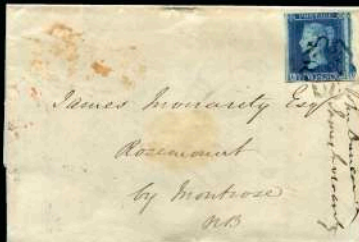 POSTAGE
James Moriarty Esq
Rosemount
by Montrose
NB